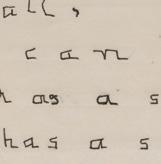 all,
can
has a s
has a s